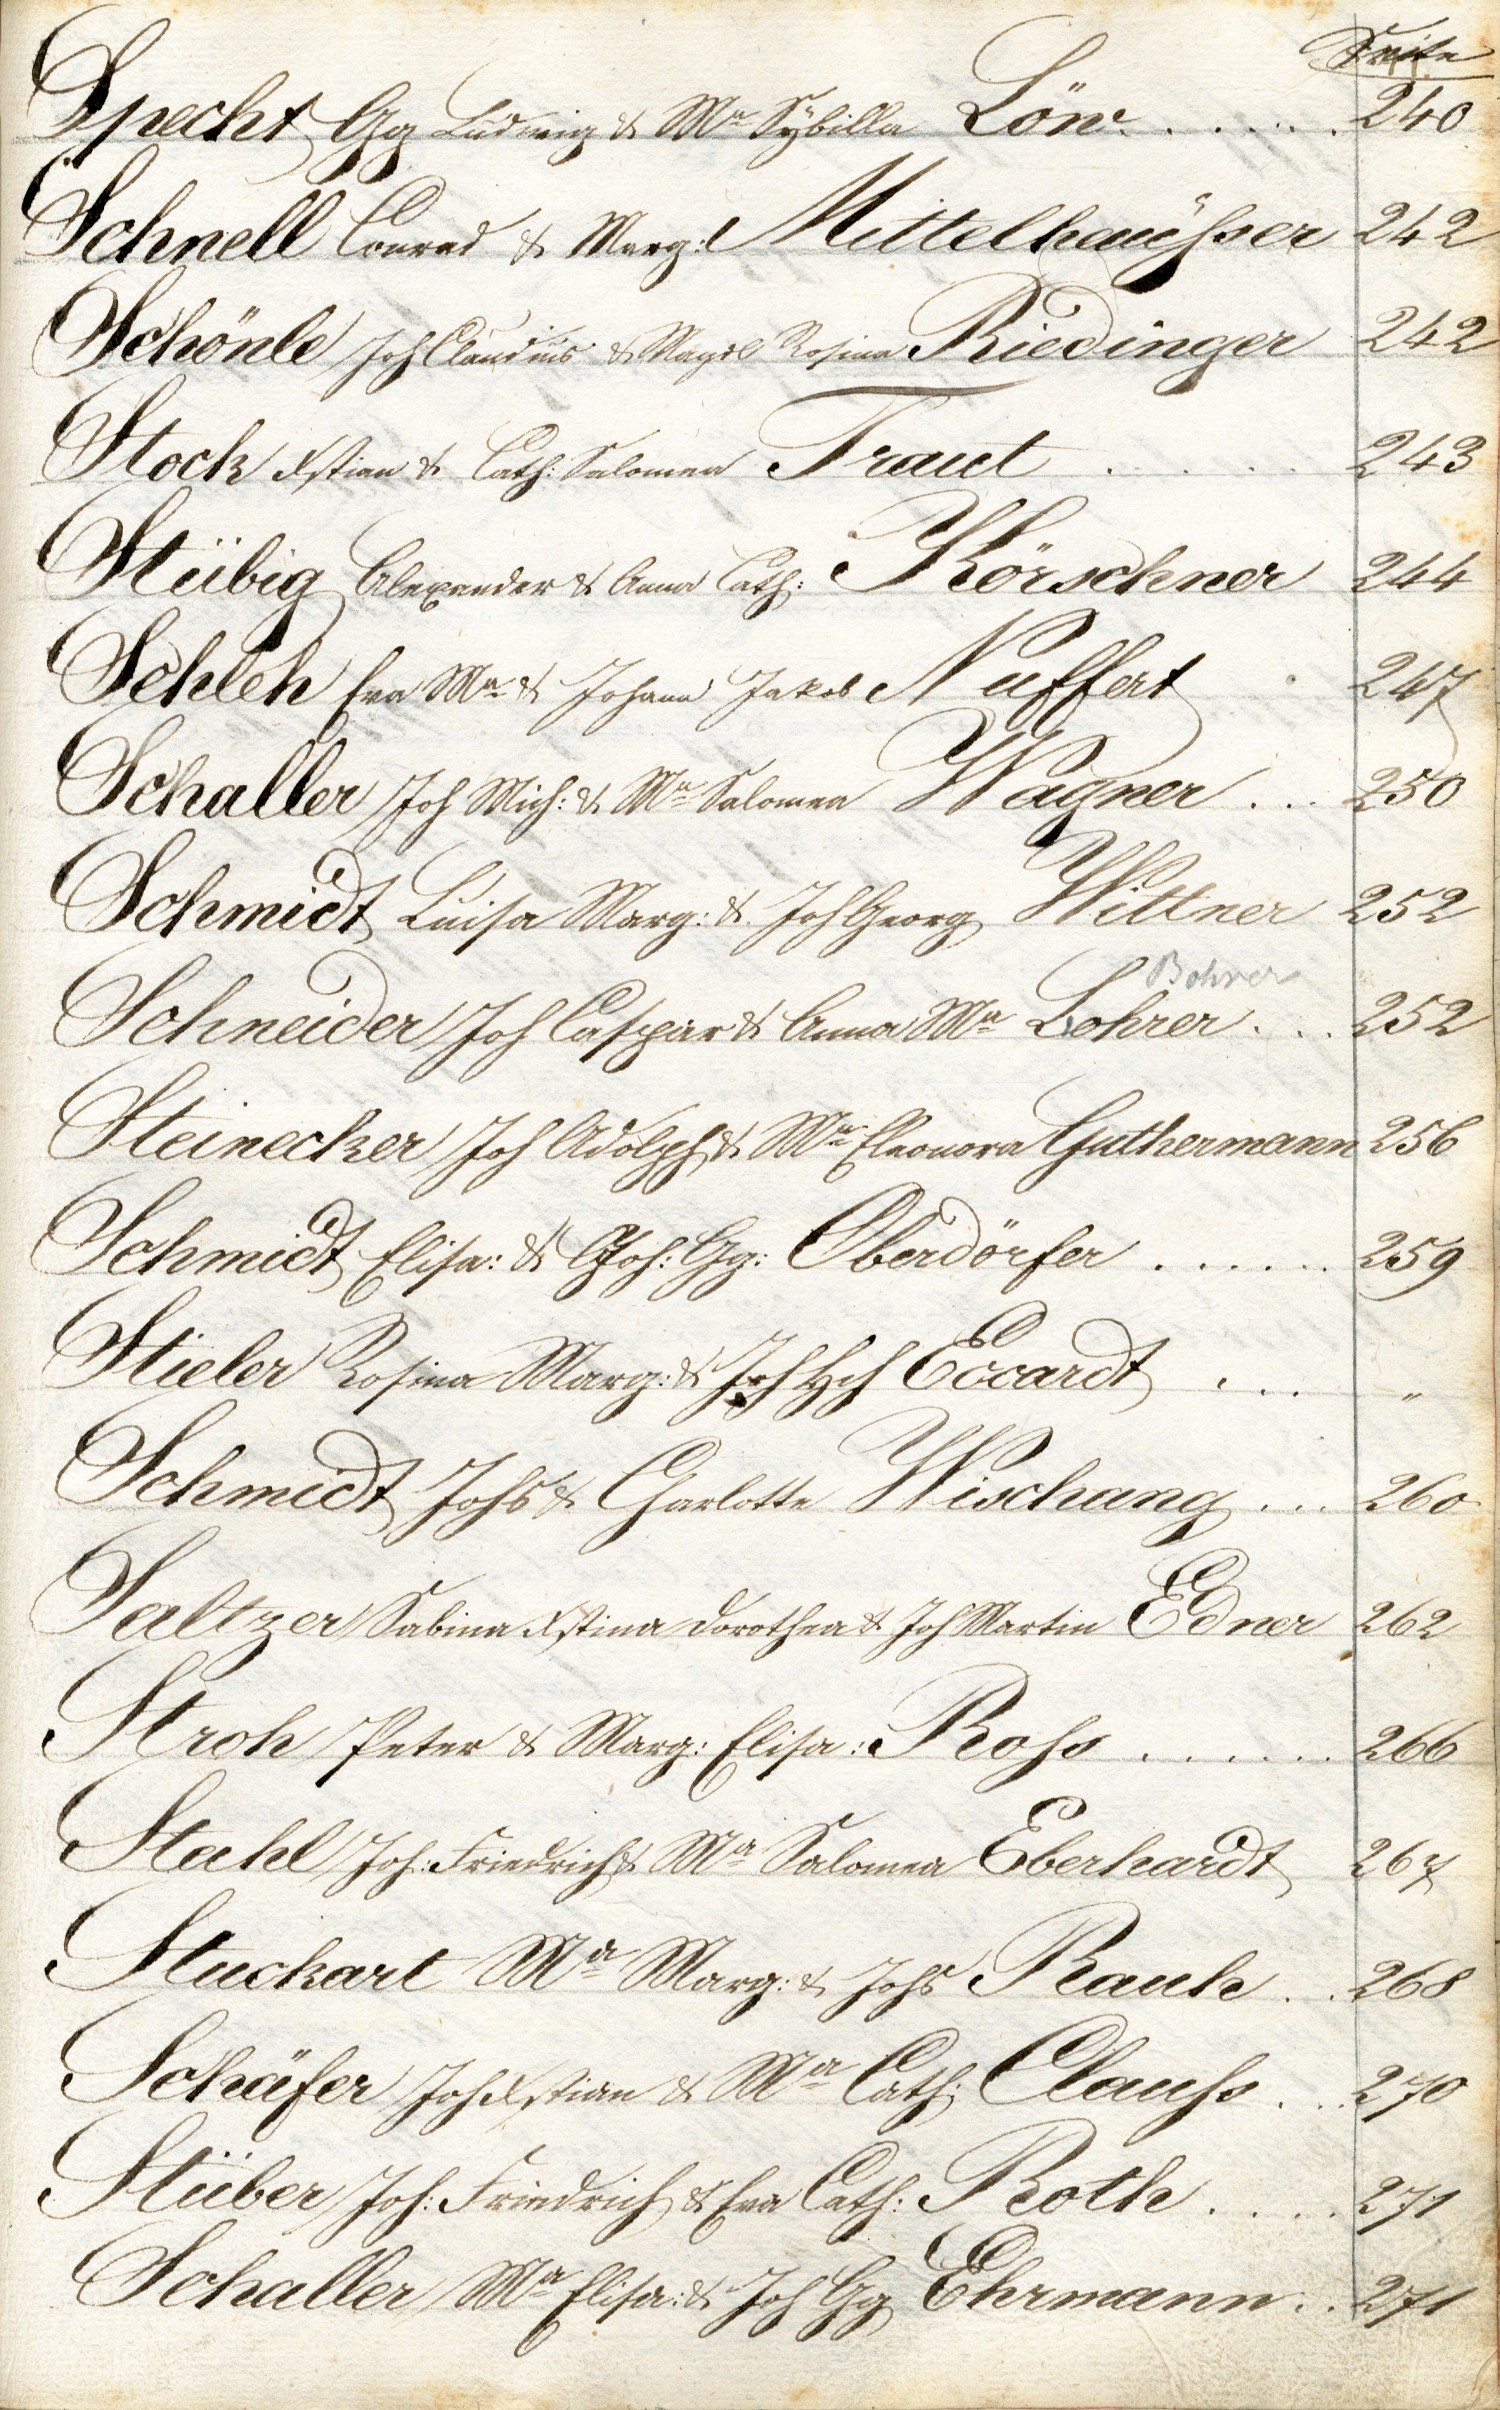 Seite
Specht Gg Ludwig & Ma Sybilla Löw . . . . . . 240
Schnell Conrad & Marg: Mittelhaüßer 242
Schönle Joh Claudius & Magdl Rosina Riedinger 242
Stock Xstian & Cath: Salomea Traut . . . . . 243
Stübig Alexander & Anna Cath: Körschner 244
Schleh Eva Ma & Johann Jakob Nuffert . 247
Schaller Joh Mich: & Ma Salomea Wagner . . . 250
Schmidt Luisa Marg: & Joh Georg Wittner 252
Bohrer
Schneider Joh Caspar & Anna Ma Lohrer . . . 252
Steinecker Joh Adolph & Ma Eleonora Guthermann 256
Schmidt Elisa: & Joh: Gg: Oberdörfer . . . . . . 259
Stieler Rosina Marg: & Joh Hch Eccardt . . . "
Schmidt Johs & Charlotte Wischang . . . 260
Saltzer Sabina Xstina Dorothea & Joh Martin Edner 262
Stroh Peter & Marg: Elisa: Roßs . . . . . . 266
Stahl Joh: Friedrich & Ma Salomea Eberhardt 267
Stuckart Ma Marg: & Johs Rauh . . 268
Schäfer Joh Xstian & Ma Cath: Clauss . . . 270
Stüber Joh: Friedrich & Eva Cath: Roth . . . . 271
Schaller Ma Elisa: & Joh Gg Ehrmann . . 271